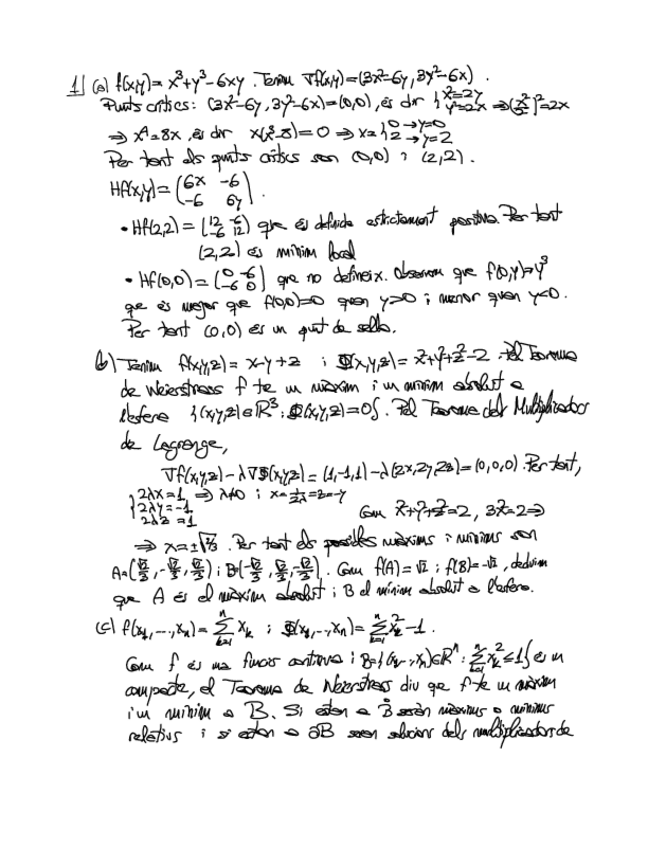 1] (a) f(x,y)= x³+y³-6xy. Tenim ∇f(x,y)=(3x²-6y, 3y²-6x).
Punts crítics: (3x²-6y, 3y²-6x)=(0,0), és dir { x²=2y y²=2x ⇒ (x²/2)²=2x
⇒ x⁴=8x, és dir x(x³-8)=0 ⇒ x={ 0 → y=0 2 → y=2
Per tant els punts crítics son (0,0) i (2,2).
Hf(x,y)= (6x -6 -6 6y).
• Hf(2,2) = (12 -6 -6 12) que és definida estrictament positiva. Per tant
(2,2) és mínim local
• Hf(0,0) = (0 -6 -6 0) que no defineix. Observem que f(0,y)=y³
que és major que f(0,0)=0 quan y>0 i menor quan y<0.
Per tant (0,0) és un punt de sella.
(b) Tenim f(x,y,z) = x-y+z i Φ(x,y,z)= x²+y²+z²-2. Pel Teorema
de Weierstrass f te un màxim i un mínim absolut a
l'esfera {(x,y,z)∈ℝ³: Φ(x,y,z)=0}. Pel Teorema del Multiplicador
de Lagrange,
∇f(x,y,z) - λ∇Φ(x,y,z) = (1,-1,1) - λ(2x,2y,2z) = (0,0,0). Per tant,
{ 2λx=1 ⇒ λ≠0 i x=1/2λ=z=-y
2λy=-1 Com x²+y²+z²=2, 3x²=2 ⇒
2λz=1
⇒ x=±√2/3. Per tant els possibles màxims i mínims son
A=(√2/3, -√2/3, √2/3) i B=(-√2/3, √2/3, -√2/3). Com f(A)=√2 i f(B)=-√2, deduim
que A és el màxim absolut i B el mínim absolut a l'esfera.
(c) f(x₁,...,xₙ)= ∑ₖ₌₁ⁿ xₖ i Φ(x₁,...,xₙ)= ∑ₖ₌₁ⁿ xₖ²-1.
Com f és una funció contínua i B={(x₁,...,xₙ)∈ℝⁿ: ∑ₖ₌₁ⁿ xₖ² ≤1} és un
compacte, el Teorema de Weierstrass diu que f te un màxim
i un mínim a B. Si estan a B̊ seràn màxims o mínims
relatius i si estan a ∂B seran solucions dels multiplicadors de